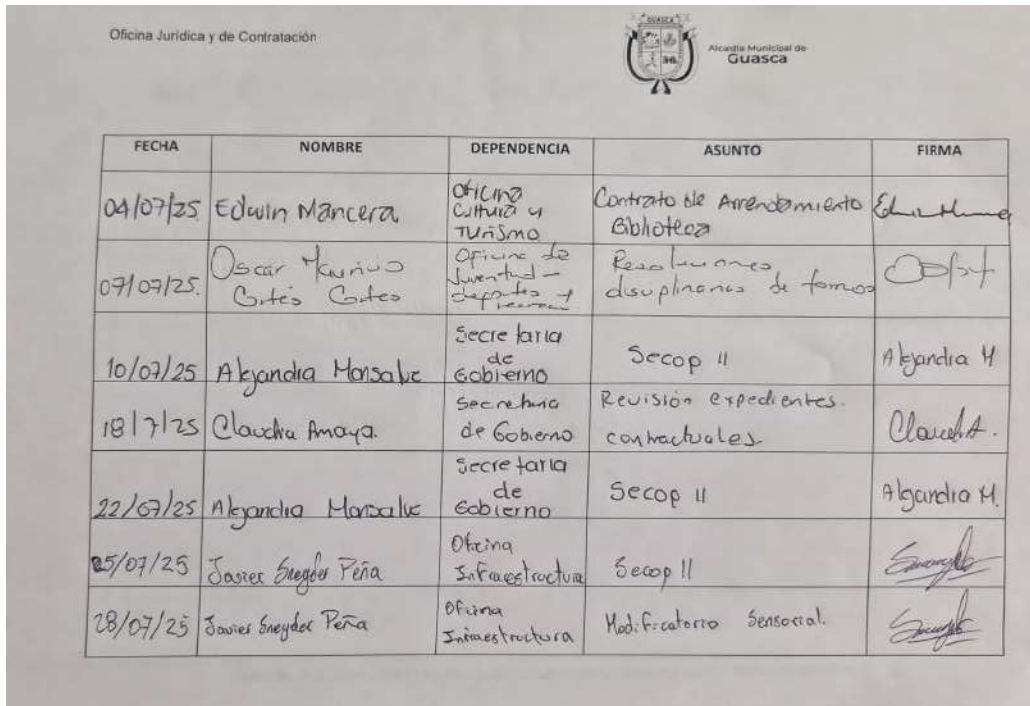 Oficina Jurídica y de Contratación
GUASCA
Alcaldía Municipal de
Guasca
FECHA NOMBRE DEPENDENCIA ASUNTO FIRMA
04/07/25 Edwin Mancera Oficina Cultura y Turismo Contrato de Arrendamiento Biblioteca
07/07/25. Oscar Mauricio Cortés Cortes Oficina de Juventud - deportes y Resoluciones disciplinarias de torneos
10/07/25 Alejandra Monsalve Secretaria de Gobierno Secop II Alejandra M
18/7/25 Claudia Amaya. Secretaria de Gobierno Revisión expedientes. contractuales Claudia A.
22/07/25 Alejandra Monsalve Secretaria de Gobierno Secop II Alejandra M.
25/07/25 Javier Sneyder Peña Oficina Infraestructura Secop II
28/07/25 Javier Sneyder Peña Oficina Infraestructura Modificatorio Sensorial.